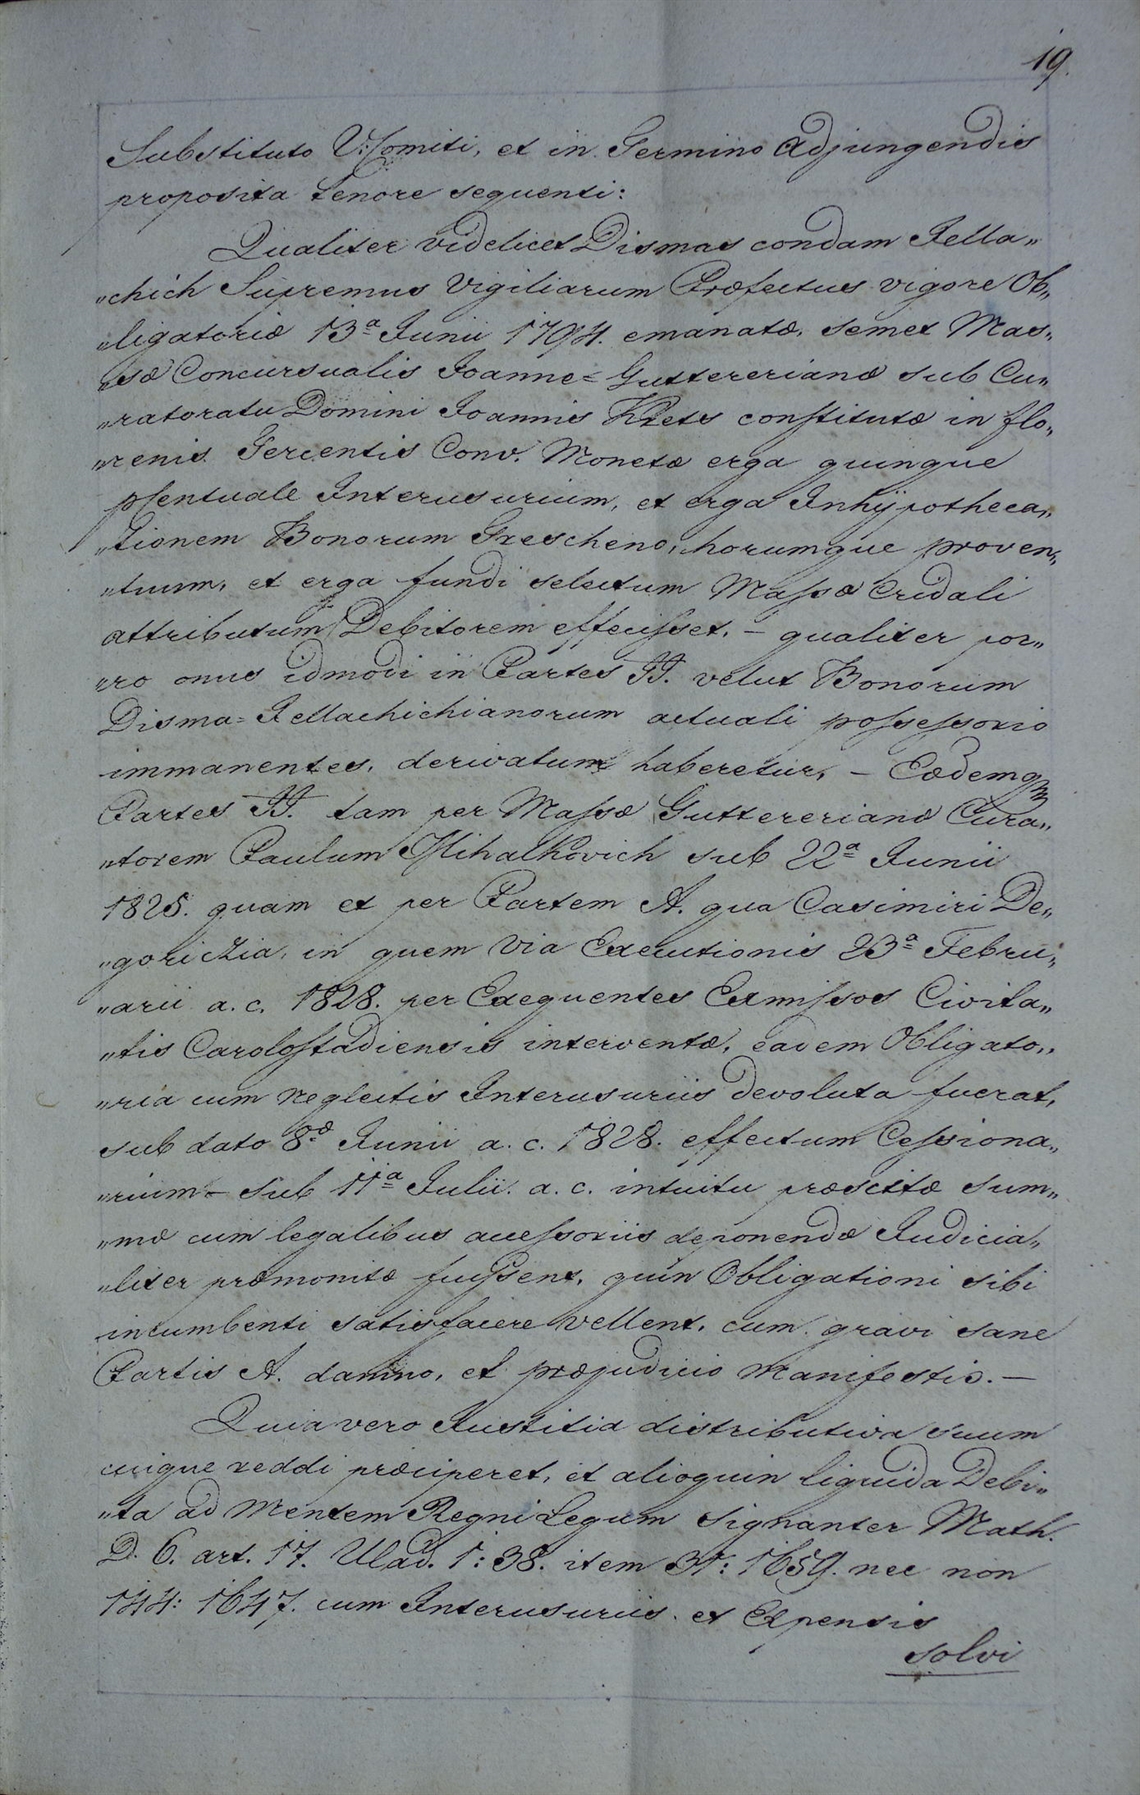 19.
Substituto V:Comiti, et in Termino adjungendis
proposita tenore sequenti:
Qualiter videlicet Dismas condam Jella„
„chich Supremus Vigiliarum Præfectus vigore Ob„
„ligatoriæ 13ª Junii 1794. emanatæ, semet Mas„
„sæ Concursualis Joanne=Guttererianæ sub Cu„
„ratoratu Domini Joannis Krets constitutæ in flo„
„renis Tercentis Conv. Monetæ erga quinque
pCentuale Interusurium, et erga Inhÿpotheca„
„tionem Bonorum Grescheno, horumque proven„
„tuum, et erga fundi selectum Massæ Cridali
attributum Debitorem effecisset. – qualiter por„
„ro onus idmodi in Partes JJ. velut Bonorum
Disma=Jellachichianorum actuali possessorio
immanentes, derivatum haberetur, – Eædemq
Partes JJ. tam per Massæ Guttererianæ Cura„
„torem Paulum Mihalkovich sub 22ª Junii
1825. quam et per Partem A. qua Casimiri De„
„goriczia, in quem via Executionis 23ª Febru„
„arii a. c. 1828. per Exequentes Exmissos Civita„
„tis Carolostadiensis interventæ, eadem Obligato„
„ria cum neglectis Interusuriis devoluta fuerat,
sub dato 8æ Junii a. c. 1828. effectum Cessiona„
„rium – sub 11ª Julii. a. c. intuitu præscittæ sum„
„mæ cum legalibus accessoriis deponendæ Judicia„
„liter præmonitæ fuissent, quin Obligationi sibi
incumbenti satisfacere vellent, cum gravi sane
Partis A. damno, et præjudicio manifestis. –
Quia vero Justitia distributiva suum
cuique reddi præciperet, et alioquin liquida Debi„
„ta ad mentem Regni Legum signanter Math.
D. 6. art. 17. Ulad. 1: 38. item 31: 1659. nec non
144: 1647. cum Interusuriis et Expensis
solvi